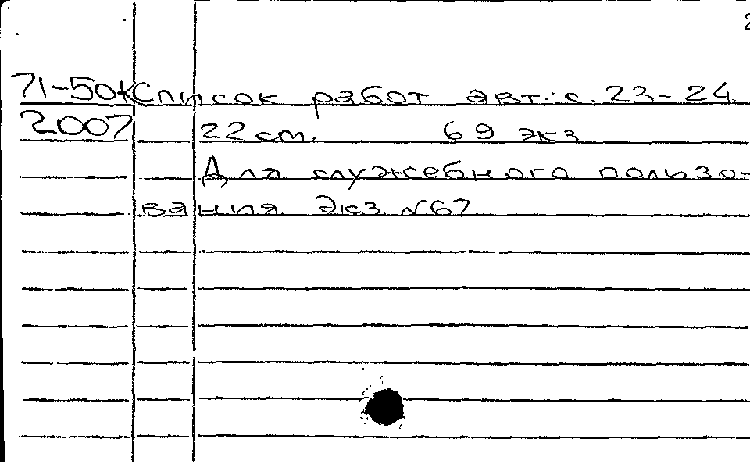 2
71-50к Список работ авт.: с. 23-24
2007 22 см. 69 экз
Для служебного пользо-
вания. Экз. №67